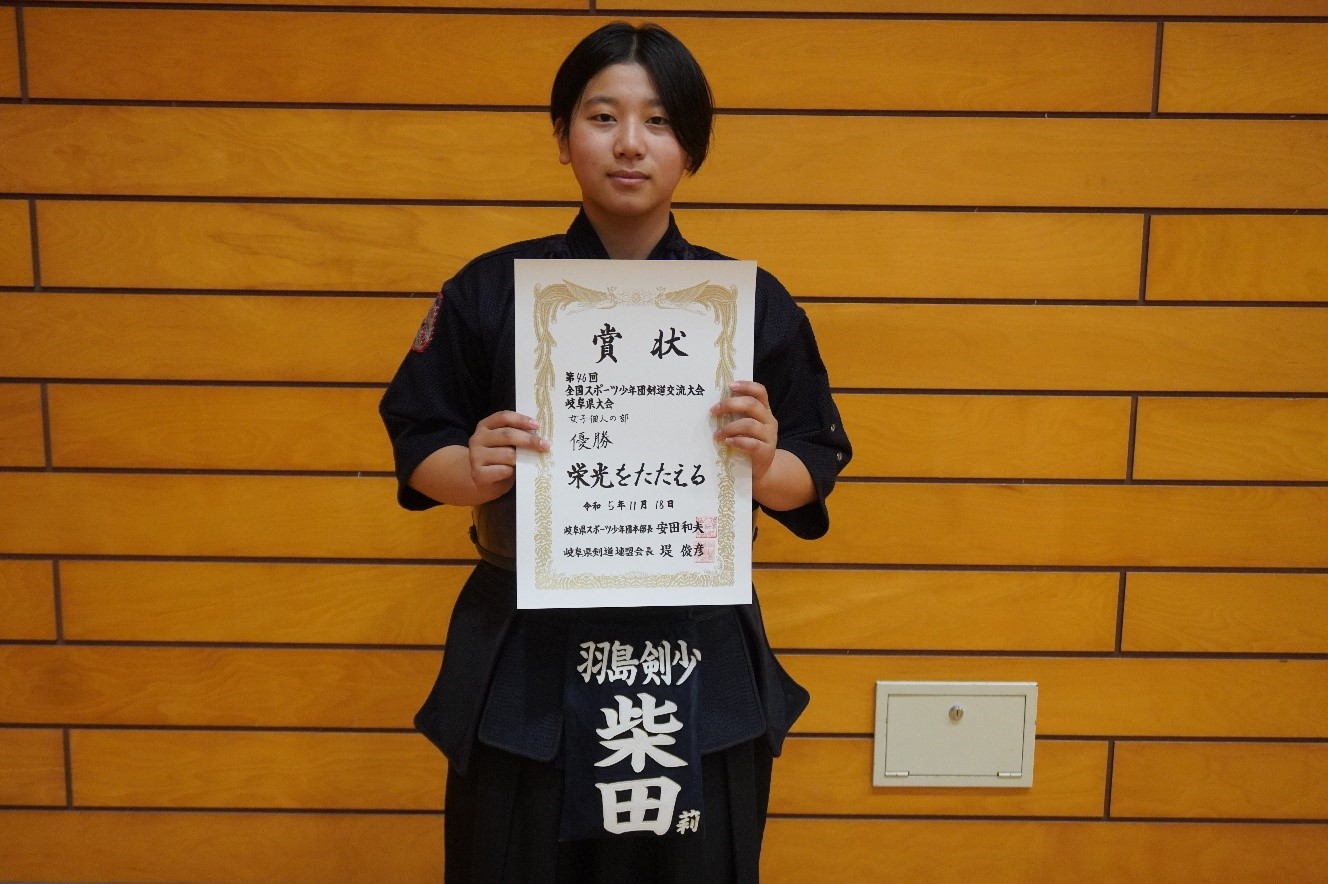 賞状
第46回
全国スポーツ少年団剣道交流大会
岐阜県大会
女子個人の部
優勝
栄光をたたえる
令和5年11月18日
岐阜県スポーツ少年団本部長 安田和夫
岐阜県剣道連盟会長 堤 俊彦
羽島剣少
柴田
莉